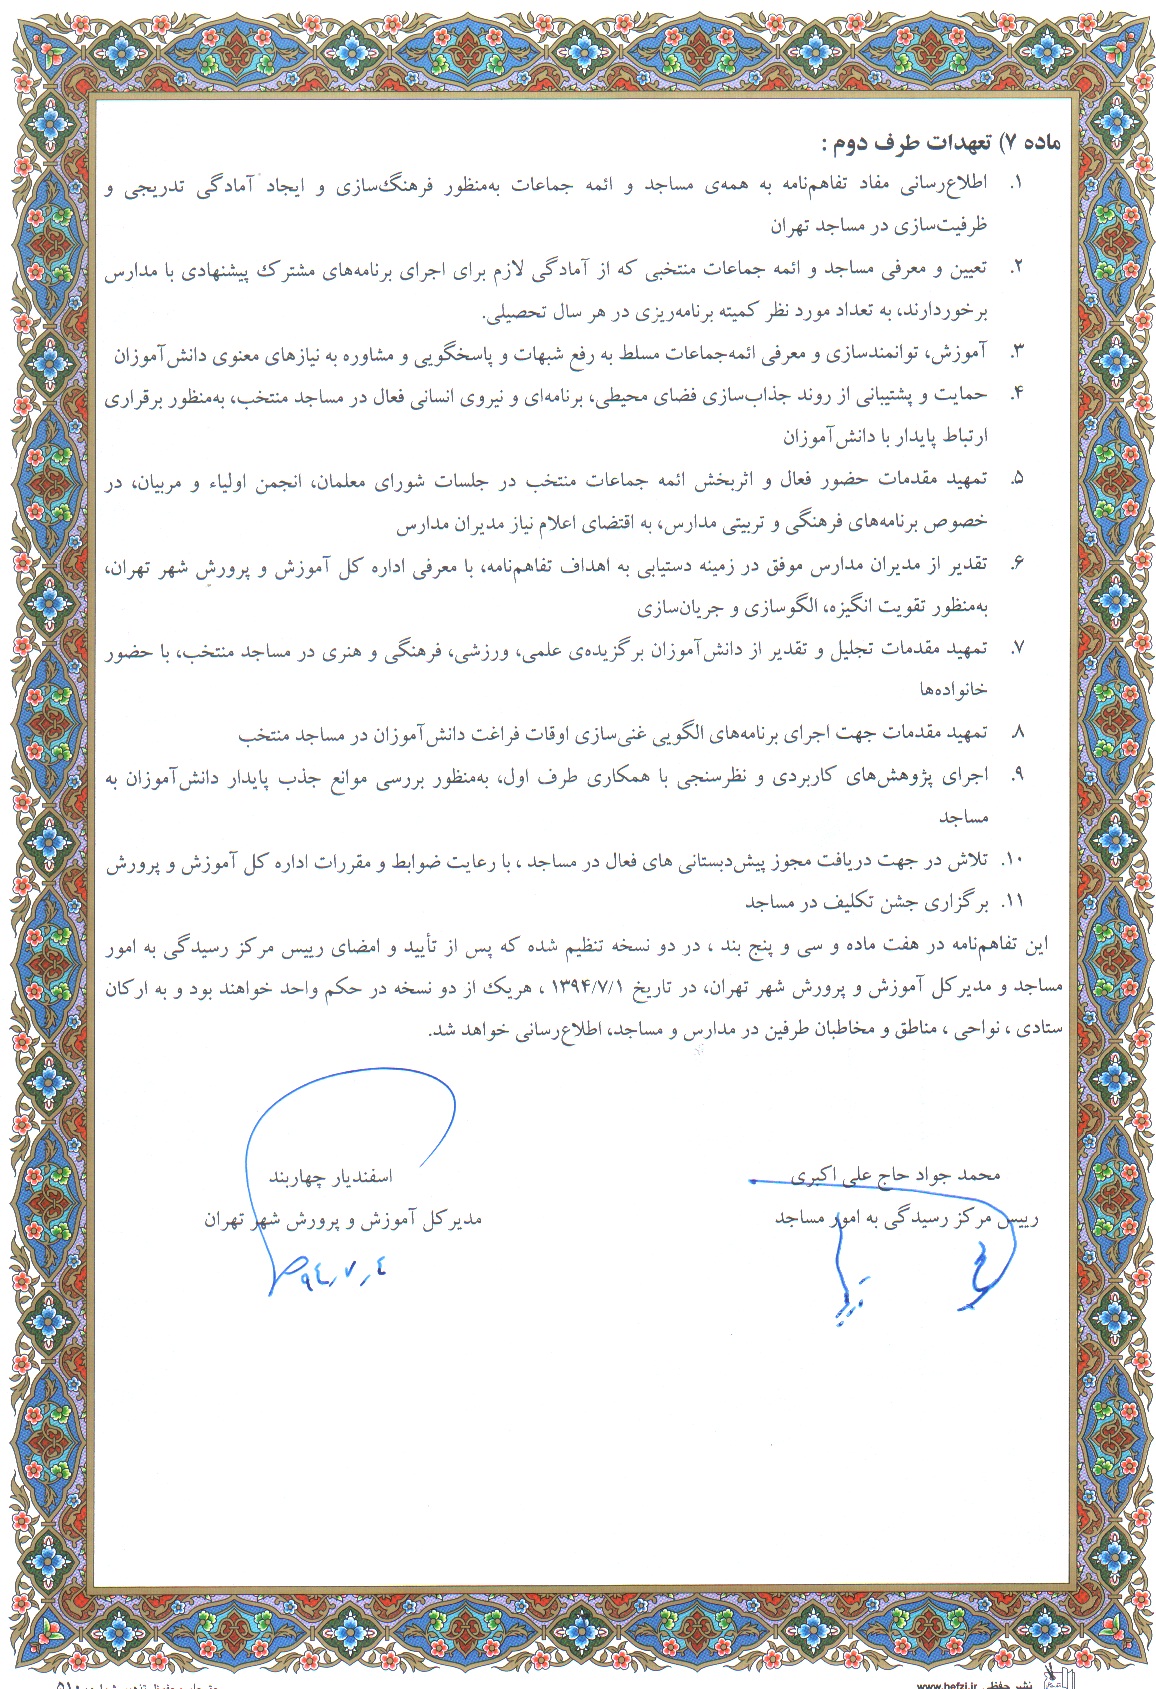 ماده ۷) تعهدات طرف دوم :
۱. اطلاع‌رسانی مفاد تفاهم‌نامه به همه‌ی مساجد و ائمه جماعات به‌منظور فرهنگ‌سازی و ایجاد آمادگی تدریجی و
ظرفیت‌سازی در مساجد تهران
۲. تعیین و معرفی مساجد و ائمه جماعات منتخبی که از آمادگی لازم برای اجرای برنامه‌های مشترک پیشنهادی با مدارس
برخوردارند، به تعداد مورد نظر کمیته برنامه‌ریزی در هر سال تحصیلی.
۳. آموزش، توانمندسازی و معرفی ائمه‌جماعات مسلط به رفع شبهات و پاسخگویی و مشاوره به نیازهای معنوی دانش‌آموزان
۴. حمایت و پشتیبانی از روند جذاب‌سازی فضای محیطی، برنامه‌ای و نیروی انسانی فعال در مساجد منتخب، به‌منظور برقراری
ارتباط پایدار با دانش‌آموزان
۵. تمهید مقدمات حضور فعال و اثربخش ائمه جماعات منتخب در جلسات شورای معلمان، انجمن اولیاء و مربیان، در
خصوص برنامه‌های فرهنگی و تربیتی مدارس، به اقتضای اعلام نیاز مدیران مدارس
۶. تقدیر از مدیران مدارس موفق در زمینه دستیابی به اهداف تفاهم‌نامه، با معرفی اداره کل آموزش و پرورش شهر تهران،
به‌منظور تقویت انگیزه، الگوسازی و جریان‌سازی
۷. تمهید مقدمات تجلیل و تقدیر از دانش‌آموزان برگزیده‌ی علمی، ورزشی، فرهنگی و هنری در مساجد منتخب، با حضور
خانواده‌ها
۸. تمهید مقدمات جهت اجرای برنامه‌های الگویی غنی‌سازی اوقات فراغت دانش‌آموزان در مساجد منتخب
۹. اجرای پژوهش‌های کاربردی و نظرسنجی با همکاری طرف اول، به‌منظور بررسی موانع جذب پایدار دانش‌آموزان به
مساجد
۱۰. تلاش در جهت دریافت مجوز پیش‌دبستانی های فعال در مساجد ، با رعایت ضوابط و مقررات اداره کل آموزش و پرورش
۱۱. برگزاری جشن تکلیف در مساجد
این تفاهم‌نامه در هفت ماده و سی و پنج بند ، در دو نسخه تنظیم شده که پس از تأیید و امضای رییس مرکز رسیدگی به امور
مساجد و مدیرکل آموزش و پرورش شهر تهران، در تاریخ ۱۳۹۴/۷/۱ ، هریک از دو نسخه در حکم واحد خواهند بود و به ارکان
ستادی ، نواحی ، مناطق و مخاطبان طرفین در مدارس و مساجد، اطلاع‌رسانی خواهد شد.
محمد جواد حاج علی اکبری
اسفندیار چهاربند
رییس مرکز رسیدگی به امور مساجد
مدیرکل آموزش و پرورش شهر تهران
۹٤٫۷٫٤
نشر حفظی www.hefzi.ir